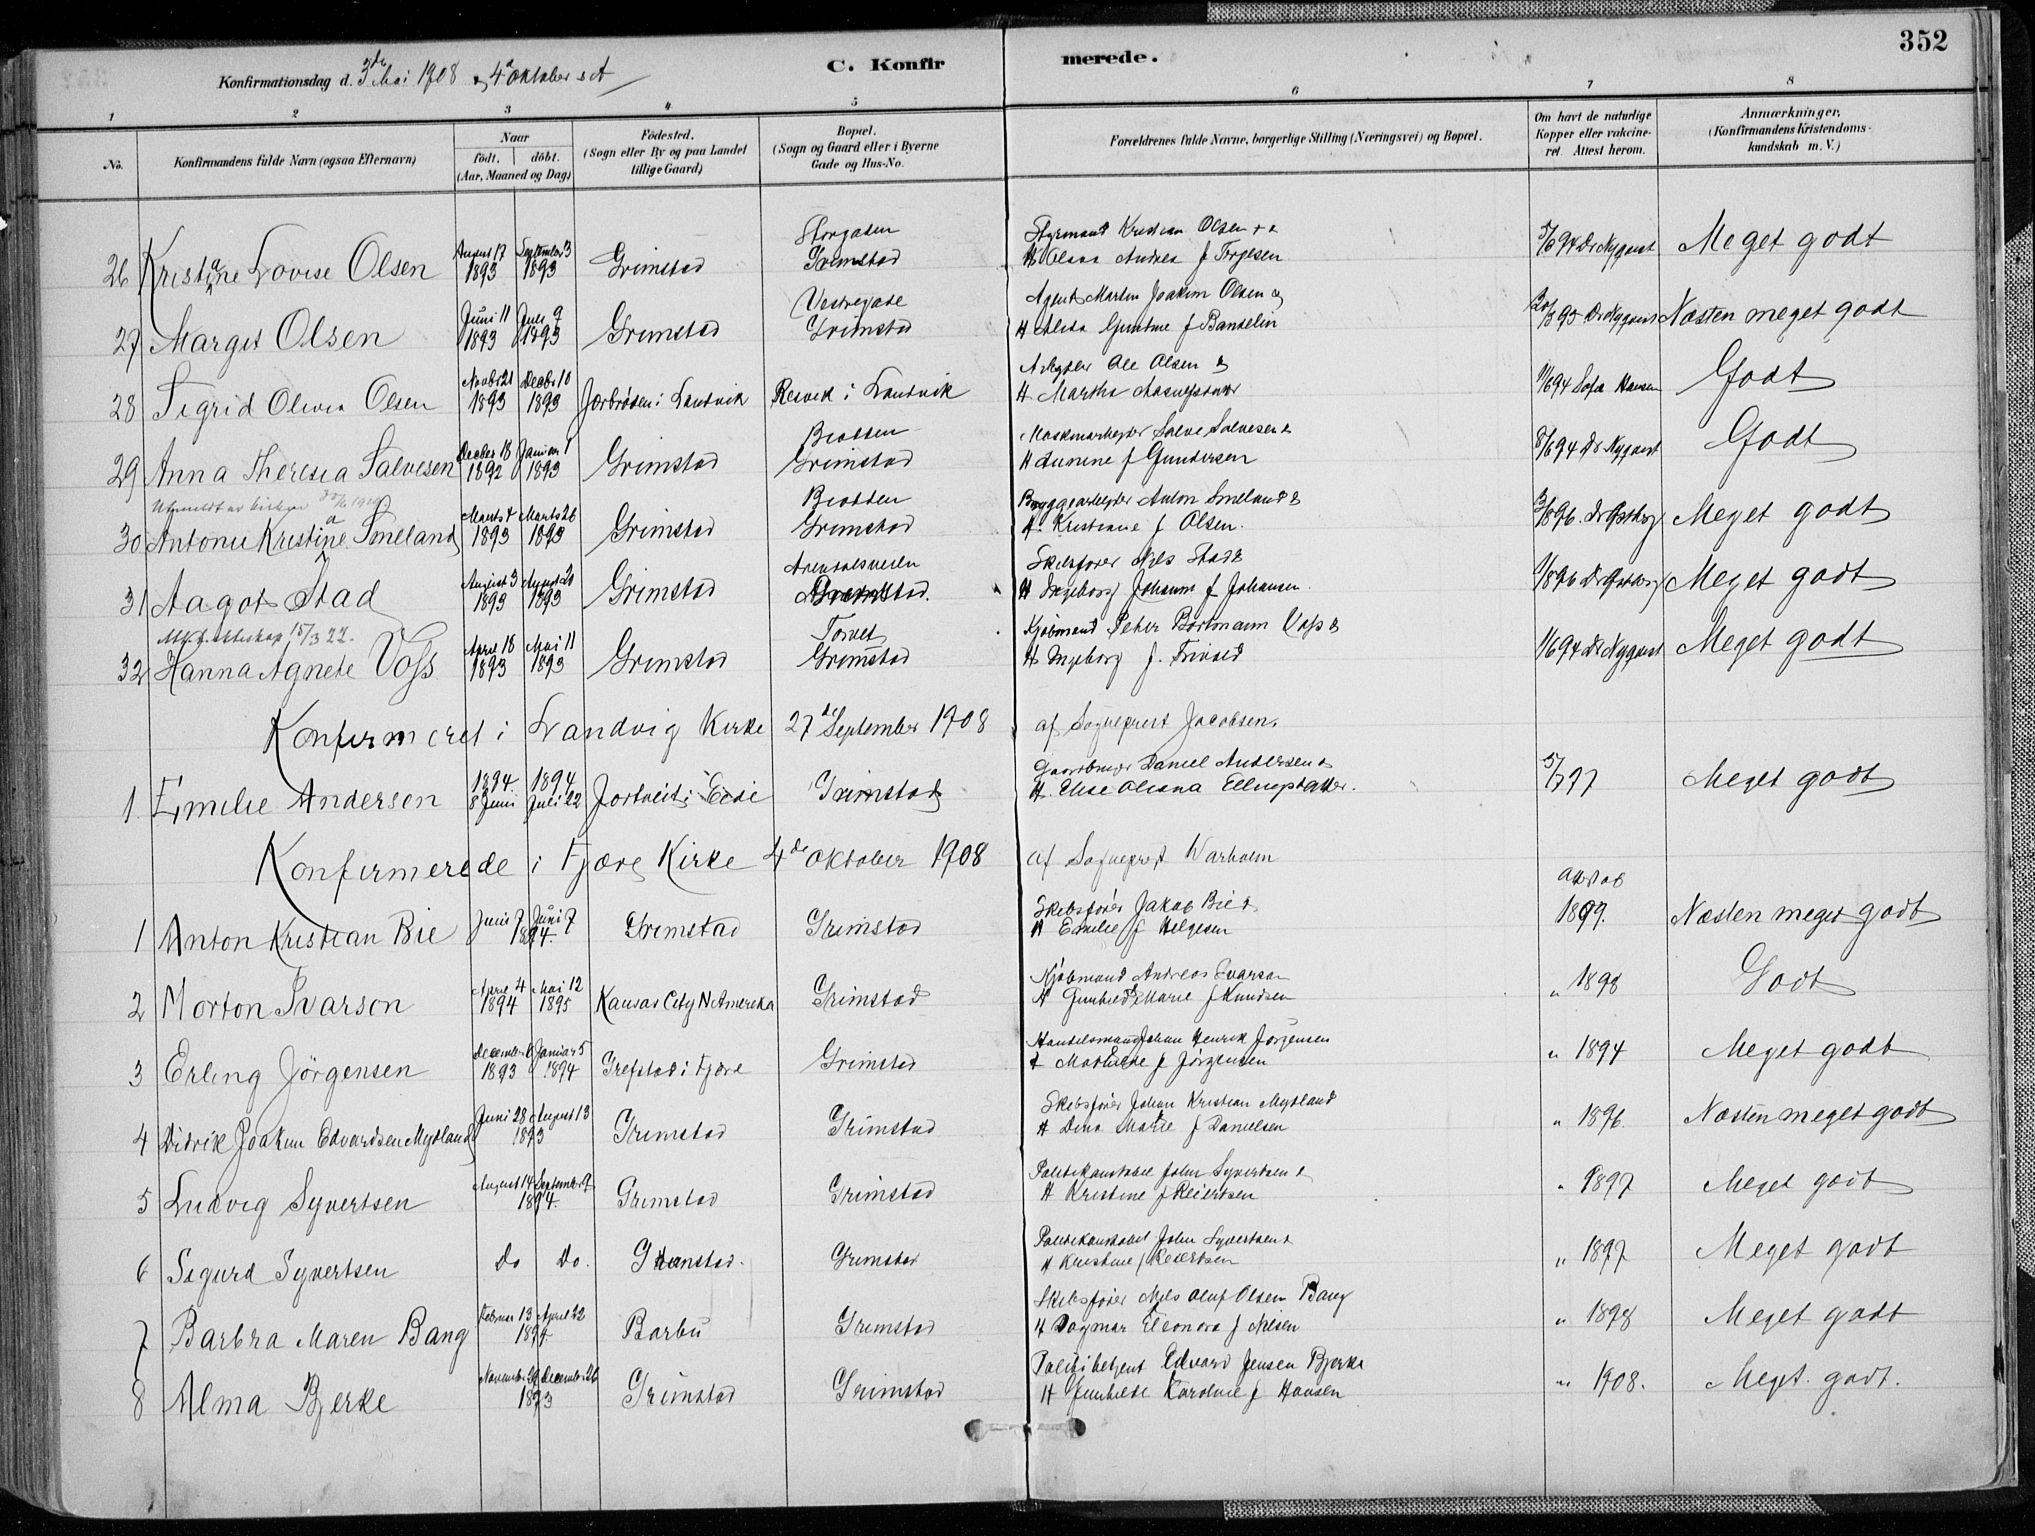 352
Konfirmationsdag d. 3de Mai 1908 og 4de Oktober s. A
C. Konfirmerede.
1 2 3 4 5 6 7 8
No.
Konfirmandens fulde Navn (ogsaa Efternavn)
Naar
födt. döbt.
(Aar, Maaned og Dag)
Födested.
(Sogn eller By og paa Landet
tillige Gaard)
Bopæl.
(Sogn og Gaard eller i Byerne
Gade og Hus-No.
Forældrenes fulde Navne, borgerlige Stilling (Næringsvei) og Bopæl.
Om havt de naturlige
Kopper eller vakcine-
ret. Attest herom.
Anmærkninger.
(Konfirmandens Kristendoms-
kundskab m. V.)
Storgaden Styrmand Kristian Olsen
26 Kristiane Lovise Olsen August 17 1893 September 3 1893 Grimstad Grimstad Olava Andrea f Terjesen Dr Nyquist Meget godt
Vestregade Agent Martin Joakim Olsen og
27 Margit Olsen Juni 11 1893 Juli 9 1893 Grimstad Grimstad H f Banselin Dr Nyquist Næsten meget godt
Arbejder Ole Olsen &
28 Sigrid Olivia Olsen Novbr 21 1893 Decbr 10 1893 i Landvik Resvik i Landvik H Martha 11/6 94 Sofie Hansen Godt
Biodden Maskinarbejder Salve Salvesen &
29 Anna Theresia Salvesen Decbr 18 1892 Januar 1 1893 Grimstad Grimstad H f Gundersen 8/6 94 Dr Nyquist Godt
Udmeldt av kirken
Biodden Bryggearbejder Anton Smeland &
30 Antonie Kristiane Smeland Marts 4 1893 Marts 26 1893 Grimstad Grimstad H. Kristiane f Olsen. Meget godt
Arendalsveien Skibsfører Nils Stad &
31 Aagot Stad August 3 1893 August 20 1893 Grimstad Grimstad. H Ingeborg Johanne f Johansen. Meget godt
15/3 22.
Torvet Kjøbmand Peter Bortmann Voss &
32 Hanna Agnete Voss April 18 1893 Mai 11 1893 Grimstad Grimstad H Ingeborg f. 11/6 94 Dr Nyquist Meget godt
Konfirmeret i Landvig Kirke 27de September 1908 af Sogneprest Jacobsen.
Gaardbruger Daniel Andersen &
1. Emilie Andersen 1894 8 Juni 1894 Juli 22 i Eide Grimstad H. Else Oliana Ellingsdatter. Meget godt
Konfirmerede i Fjære Kirke 4de Oktober 1908 af Sogneprest Warholm
Attest af
Skibsfører Jakob Bie &
1 Anton Kristian Bie Juni 7 Juni 7 1894. Grimstad Grimstad H Emilie f Helgesen 1899. Næsten meget godt
Kjøbmand Andreas Ivarson
2 Morton Ivarson April 4 1894 Mai 12 1895 Kansas City N. Amerika Grimstad H Gunhild Marie f Knudsen " 1898 Godt
Handelsmand Johan Henrik Jørgensen
3 Erling Jörgensen December 6 1893 Januar 5 1894 Grefstad i Fjære Grimstad & Mathilde f Jørgensen " 1894 Meget godt
Skibsfører Johan Kristian Mydland
4 Didrik Joakim Edvardsen Mydland Juni 28 August 13 1893 Grimstad Grimstad H Dina Marie f Danielsen " 1896. Næsten meget godt
Politikonstabel John Syvertsen &
5 Ludvig Syvertsen August 14 September 9 1894. Grimstad Grimstad H Kristine f Reiersen " 1897 Meget godt
Politikonstabel John Syvertsen &
6 Sigurd Syvertsen Do Do. Grimstad. Grimstad H Kristine f Reiersen " 1897 Meget godt
Skibsfører Nils Oluf Olsen Bang
7 Barbra Maren Bang Februar 13 April 22 1894. Barbu Grimstad H Dagmar Eleonora f Nilsen " 1898 Meget godt
Politibetjent Edvard Jensen Bjerke
8 Alma Bjerke Novemb. December 26 1893 Grimstad Grimstad H Gunhilde Karoline f Hansen " 1908. Meget godt.